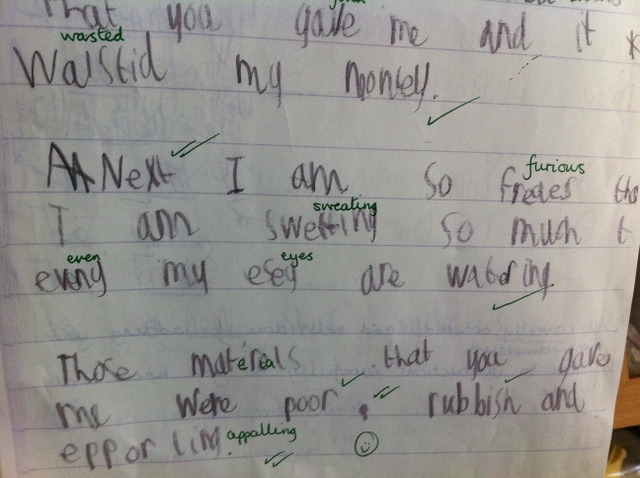 That you gave me and it
wasted
Walstid my money.
furious
AA Next I am so fredes tha
sweating
I am swetting so much t
even eyes
eveng my esey are watering.
Those materials that you gave
me were poor, rubbish and
epporling. appalling